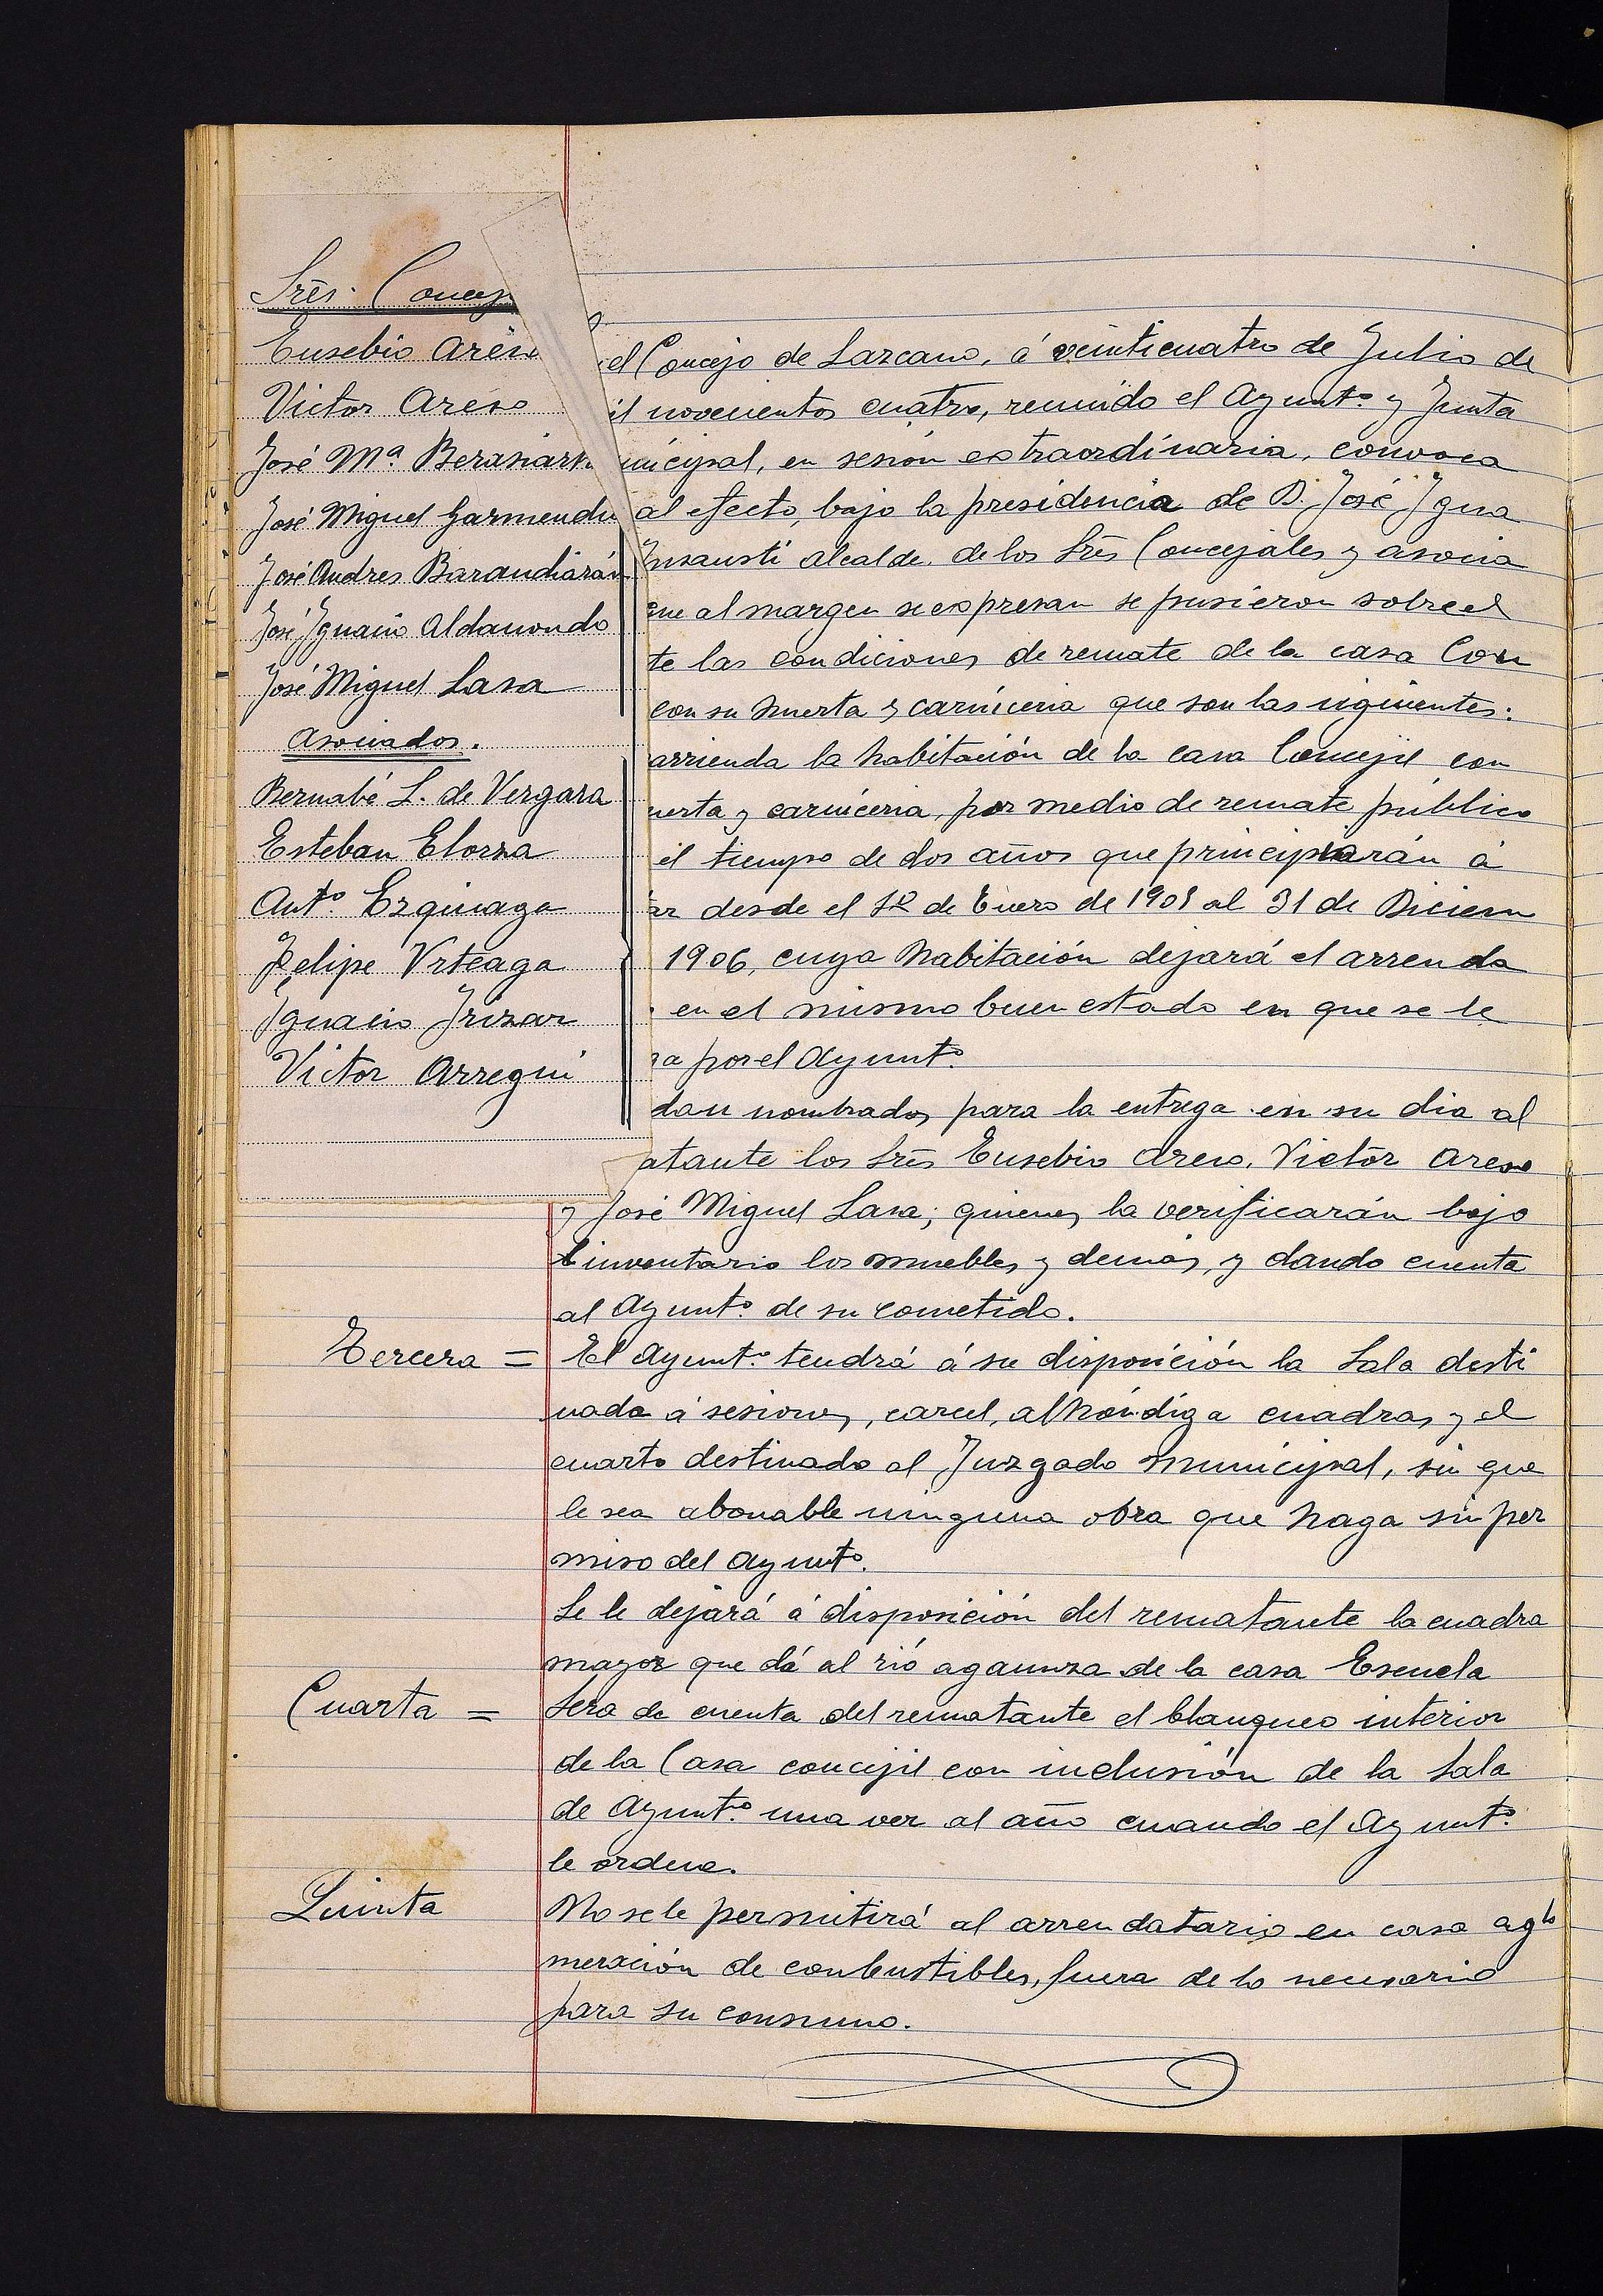 Sres. Concej
Eusebio Areso
Victor Areso
José Mª Berasiart
José Miguel Garmendia
José Andres Barandiarán
José Ygnacio Aldanondo
José Miguel Lasa
Asociados.
Bernabé L. de Vergara
Esteban Elorza
Antº Ezquiaga
Felipe Urteaga
Ygnacio Irizar
Victor Arregui
el Concejo de Lazcano, á veinticuatro de Julio de
il novecientos cuatro, reunido el Ayuntº y Junta
unicipal, en sesión extraordinaria, convoca
al efecto, bajo la presidencia de D. José Ygna
Insausti alcalde, de los Sres Concejales y asocia
que al margen se expresan se pusieron sobre el
te las condiciones de remate de la casa Con
con su huerta y carniceria que son las siguientes:
arrienda la habitación de la casa Concejil con
uerta y carniceria, por medio de remate público
el tiempo de dos años que principiarán á
er desde el 1º de Enero de 1905 al 31 de Diciem
1906, cuya habitación dejará el arrenda
en el mismo buen estado en que se le
ra por el Ayuntº
dan nombrados para la entrega en su dia al
atante los Sres Eusebio Areso, Victor Areso
y José Miguel Lasa; quienes la verificarán bajo
inventario los muebles y demás, y dando cuenta
al Ayuntº de su cometido.
Tercera = El Ayuntº tendrá á su disposición la Sala desti
nada á sesiones, carcel, alhóndiga cuadras y el
cuarto destinado al Juzgado municipal, sin que
le sea abonable ninguna obra que haga sin per
miso del Ayuntº.
Se le dejará á disposición del rematante la cuadra
mayor que dá al rió agaunza de la casa Escuela
Cuarta = Sera de cuenta del rematante el blanqueo interior
de la Casa concejil con inclusión de la Sala
de Ayuntº una vez al año cuando el Ayuntº
le ordene.
Quinta No se le permitirá al arrendatario en casa aglo
meración de conbustibles, fuera de lo necesario
para su consumo.